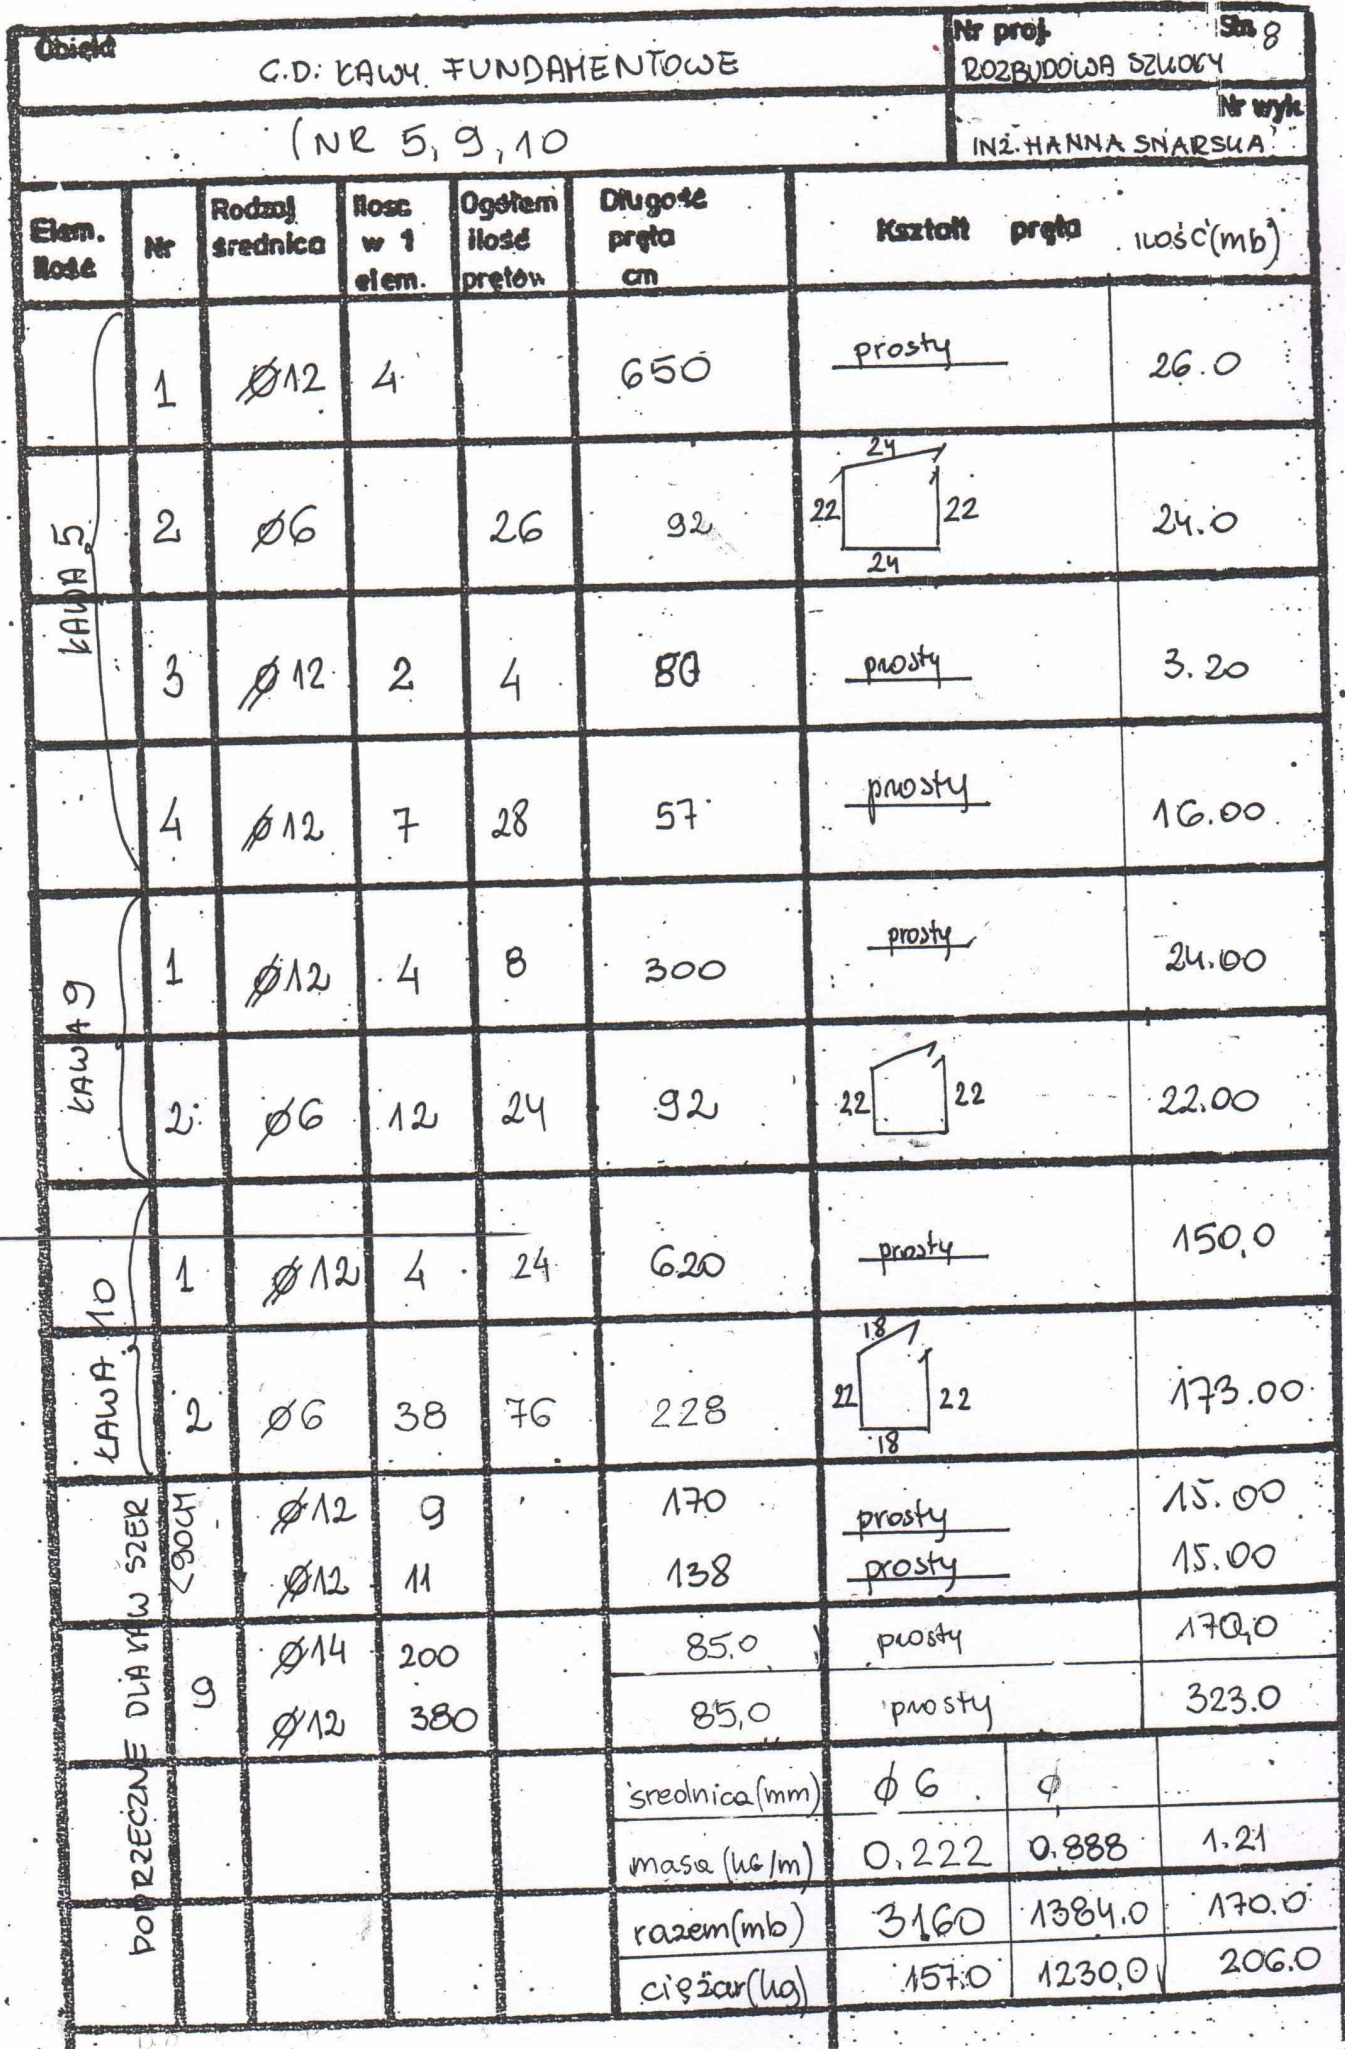 Obiekt
C.D: ŁAWY FUNDAMENTOWE
Nr proj. Str. 8
ROZBUDOWA SZKOŁY
(NR 5, 9, 10
Nr wyk.
INŻ. HANNA SNARSKA
Elem. ilość Nr Rodzaj średnica Ilosc w 1 elem. Ogółem ilość prętów Długość pręta cm Kształt pręta ilość (mb)
ŁAWA 5
1 ø12 4 650 prosty 26.0
2 ø6 26 92 24 22 22 24 24.0
3 ø12 2 4 80 prosty 3.20
4 ø12 7 28 57 prosty 16.00
ŁAWA 9
1 ø12 4 8 300 prosty 24.00
2 ø6 12 24 92 22 22 22.00
ŁAWA 10
1 ø12 4 24 620 prosty 150,0
2 ø6 38 76 228 18 22 22 18 173.00
POPRZECZNE DLA ŁAW SZER
<90CM
ø12 9 170 prosty 15.00
ø12 11 138 prosty 15.00
9
ø14 200 85,0 prosty 170,0
ø12 380 85,0 prosty 323.0
średnica (mm) ø 6 ø
masa (kG/m) 0,222 0.888 1.21
razem (mb) 3160 1384.0 170.0
ciężar (kg) 157.0 1230,0 206.0